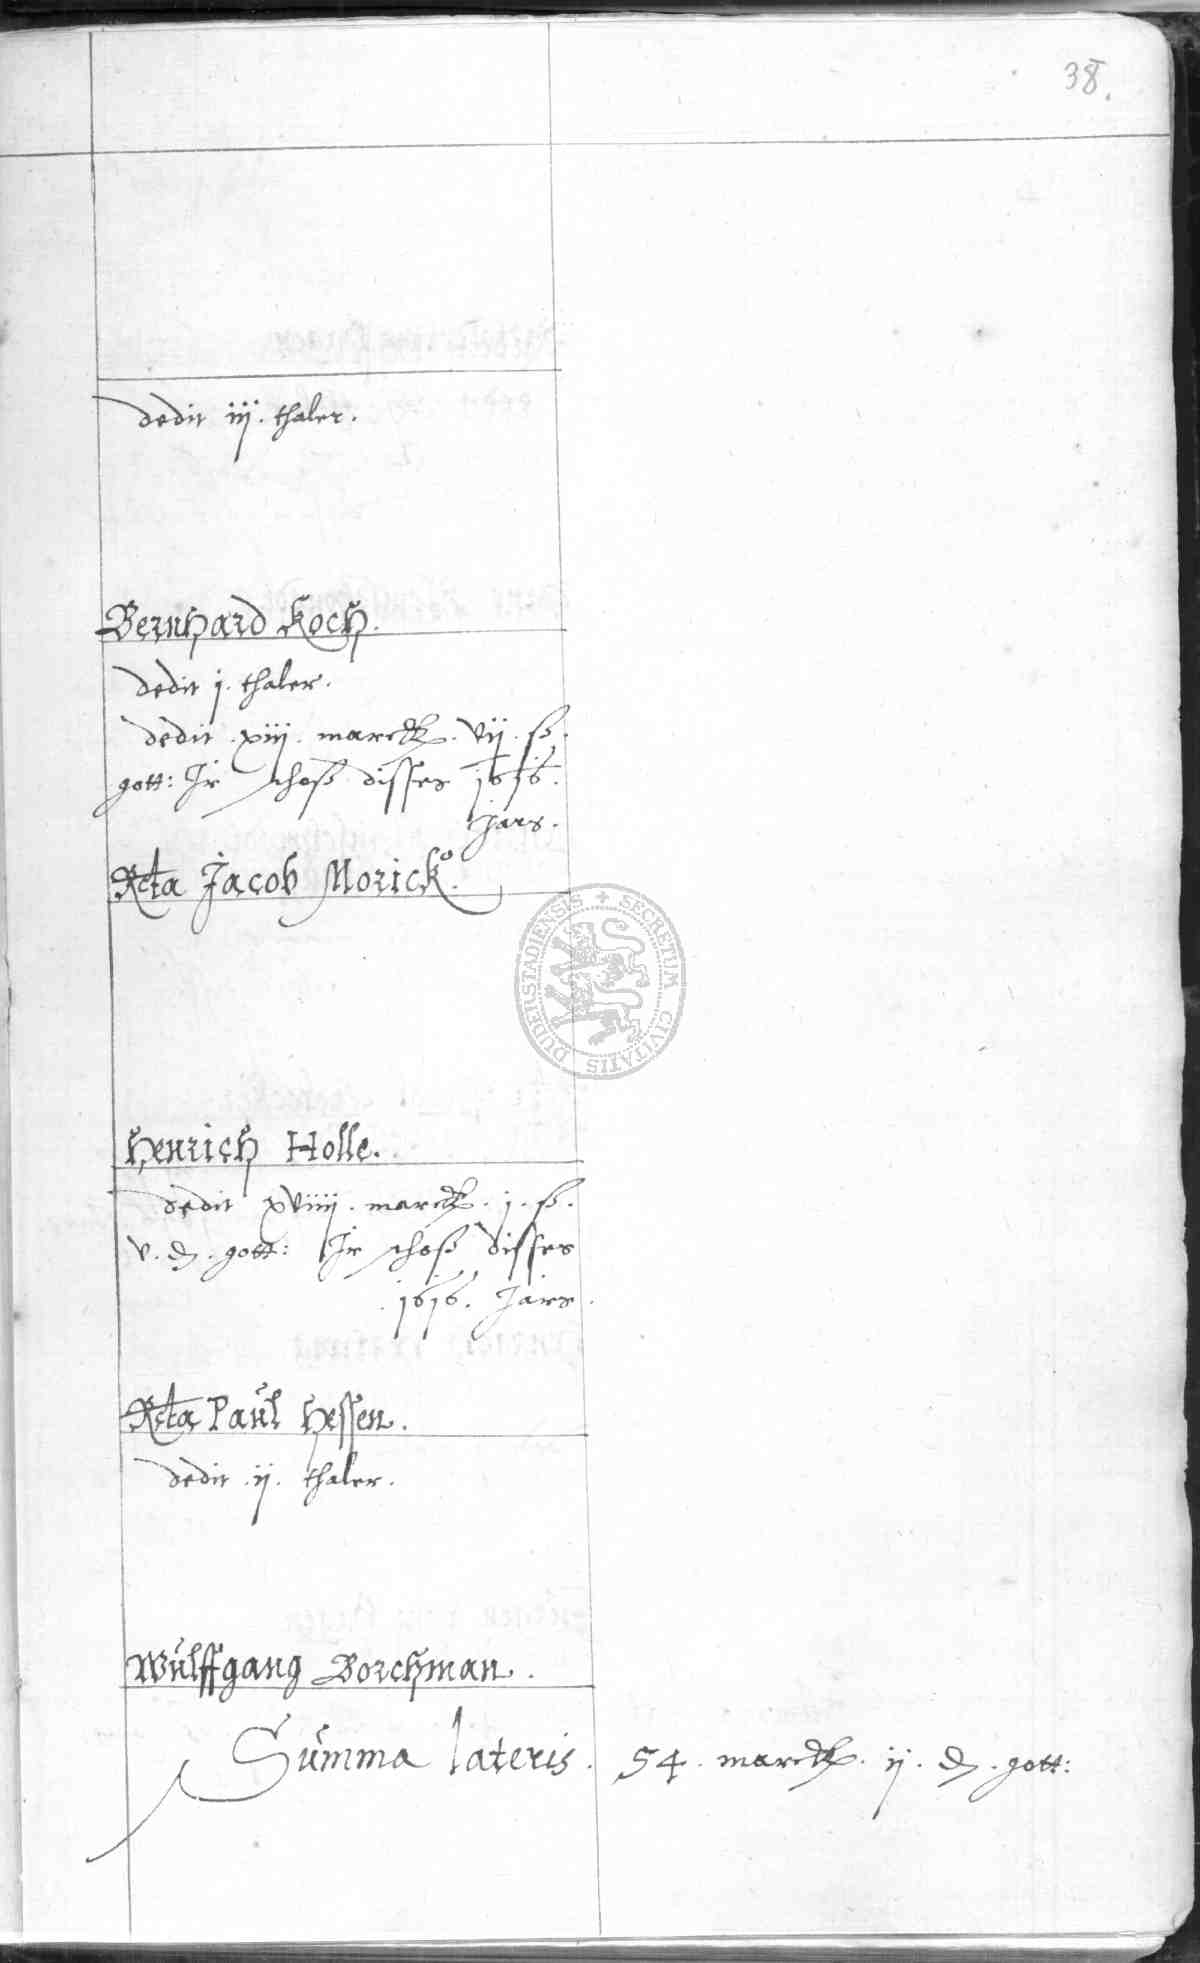 38.
dedit iij. thaler.
Bernhard Koch.
dedit j. thaler.
dedit xiij. marck. vij. ß.
gott: Jr schoß disses 1616.
Jars.
Rcta Jacob Morick.
SECRETUM CIVITATIS DUDERSTADIENSIS
Henrich Holle.
dedit xviiij. marck. j. ß.
v. d. gott: Jr schoß disses
1616. Jars.
Rcta Paul Hessen.
dedit ij. thaler.
Wulffgang Borchman.
Summa lateris. 54. marck. ij. d. gott: